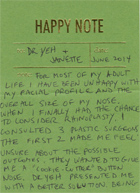 HAPPY NOTE
DR. YEH +
JANETTE JUNE 2014
FOR MOST OF MY ADULT
LIFE I HAVE BEEN UNHAPPY WITH
MY FACIAL PROFILE AND THE
OVERALL SIZE OF MY NOSE.
WHEN I FINALLY HAD THE CHANCE
TO CONSIDER RHINOPLASTY, I
CONSULTED 3 PLASTIC SURGEONS
THE FIRST 2 MADE ME FEEL
UNSURE ABOUT THE POSSIBLE
OUTCOMES. THEY WANTED TO GIVE
ME A "COOKIE CUTTER" BUTTON
NOSE. DR. YEH PRESENTED ME
WITH A BETTER SOLUTION. BRING